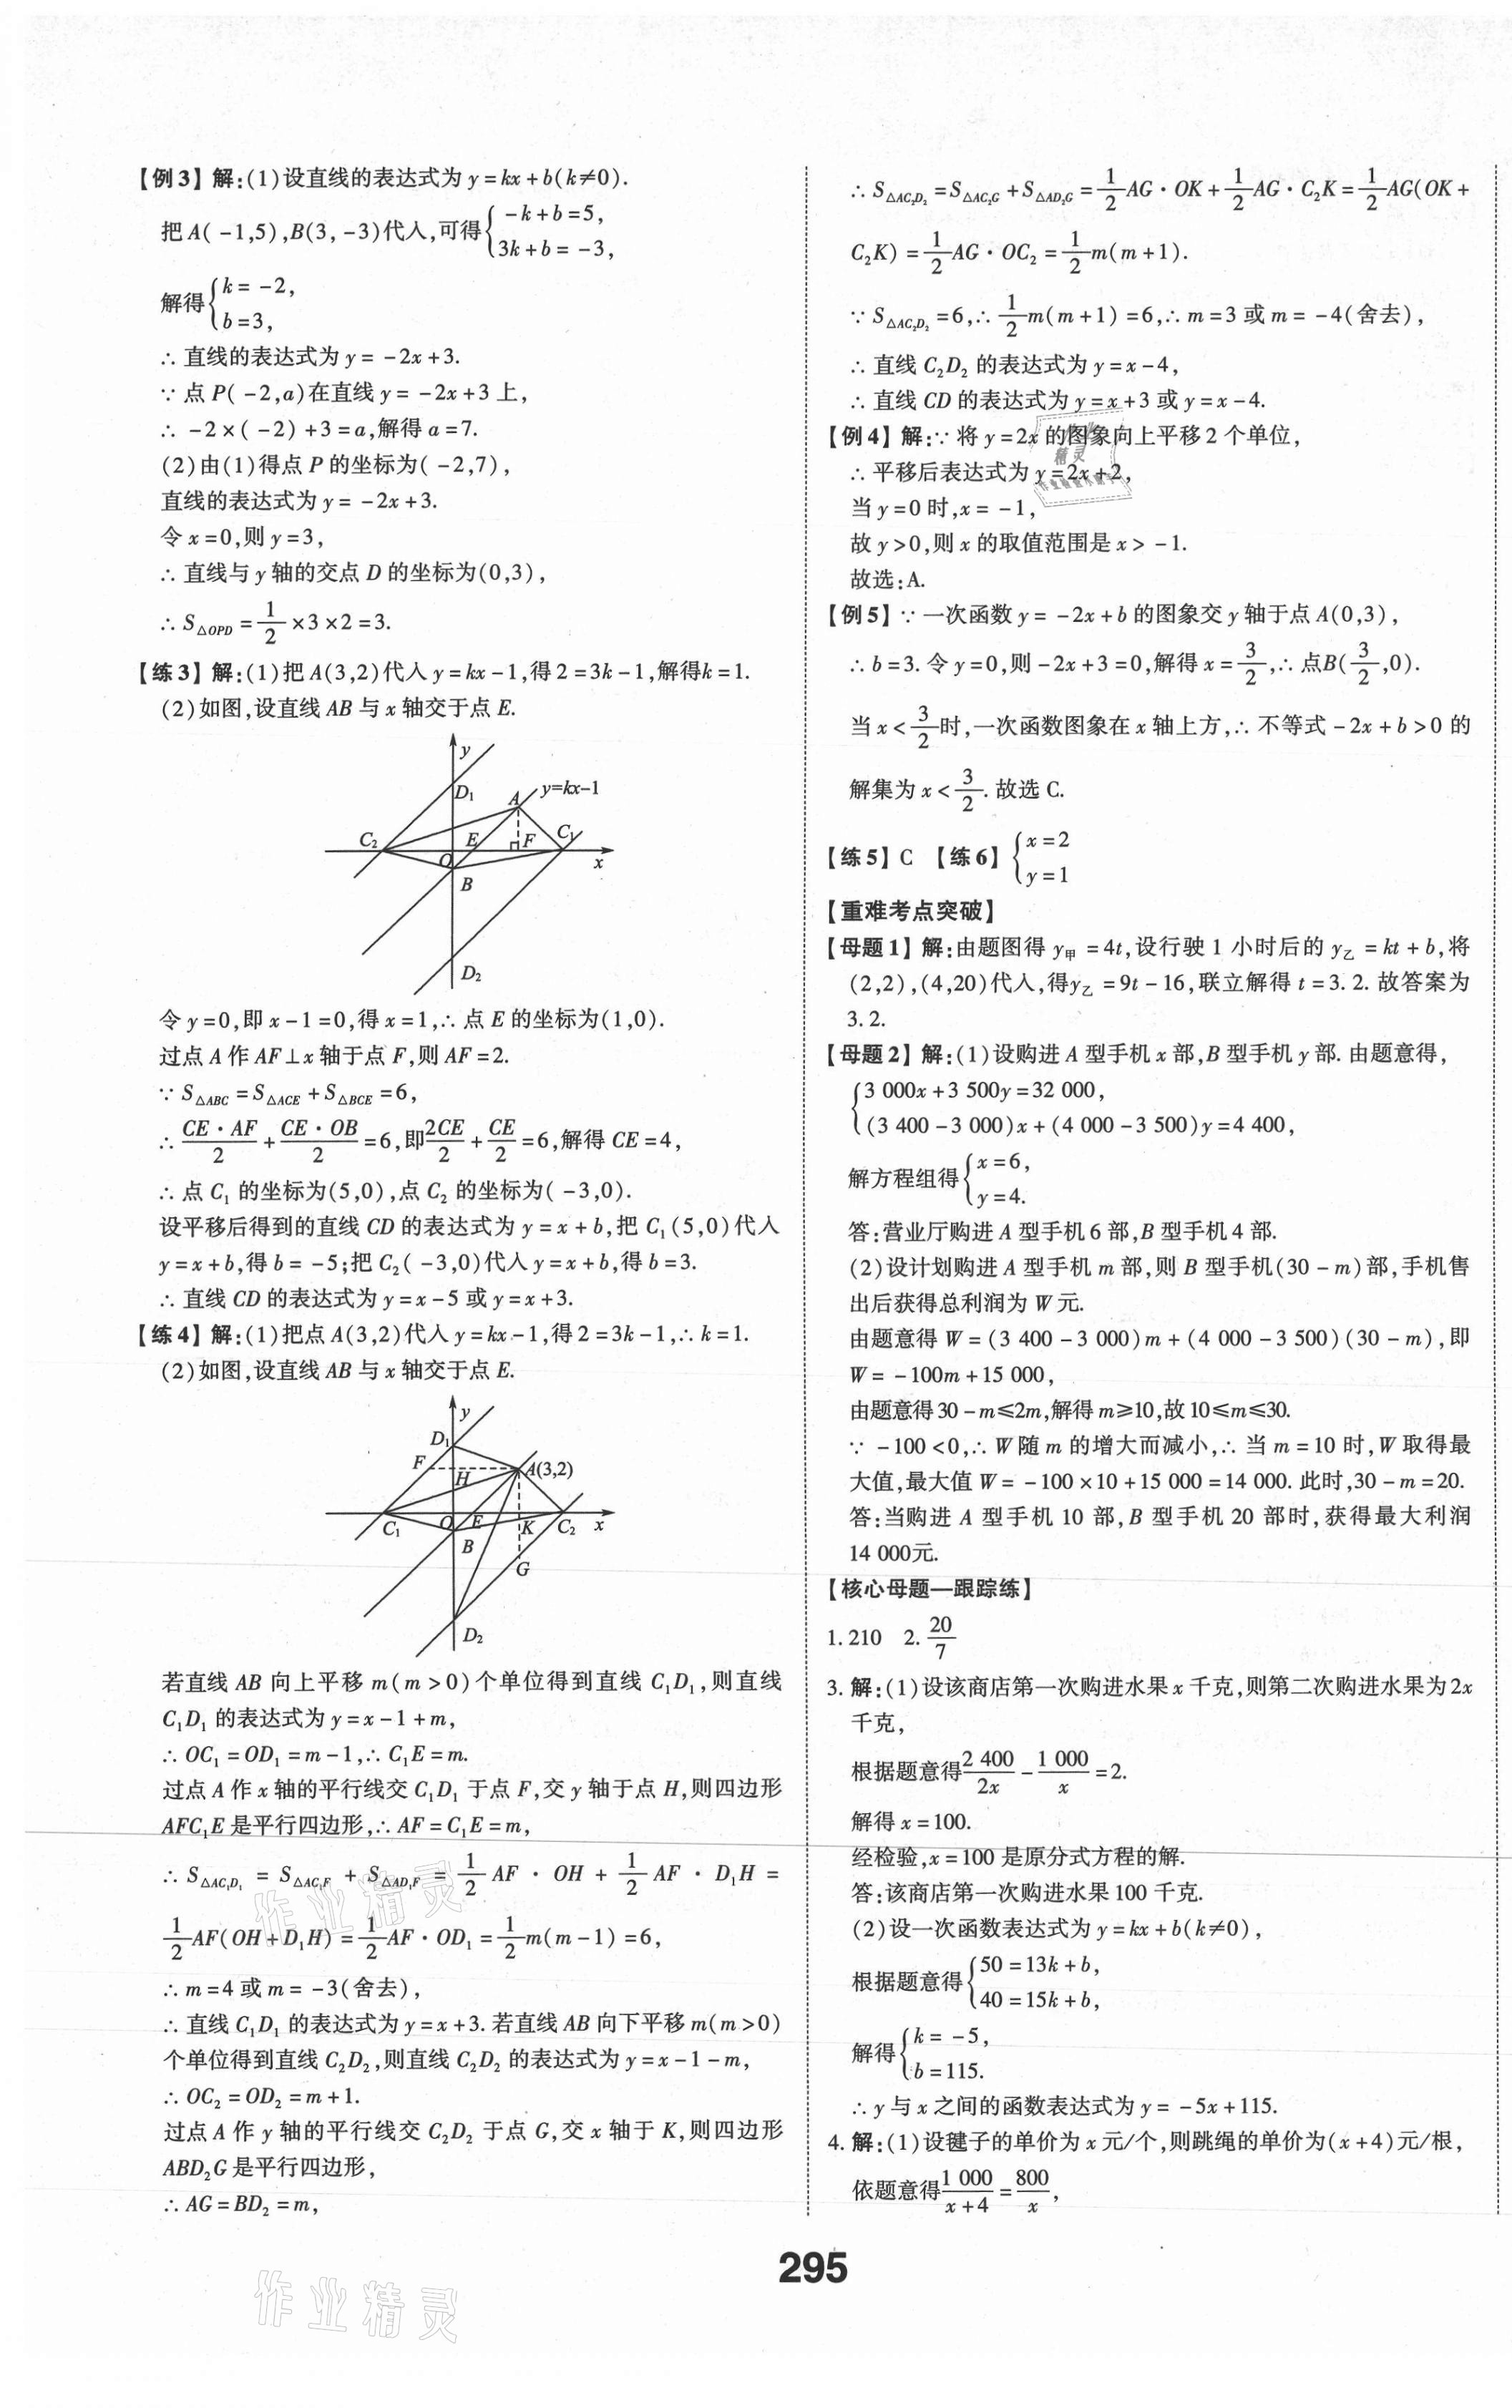 【例3】解:(1)设直线的表达式为 y=kx+b(k≠0).
把 A(-1,5),B(3,-3)代入,可得{-k+b=5,
3k+b=-3,
解得{k=-2,
b=3,
∴直线的表达式为 y=-2x+3.
∵点 P(-2,a)在直线 y=-2x+3 上,
∴-2×(-2)+3=a,解得 a=7.
(2)由(1)得点 P 的坐标为(-2,7),
直线的表达式为 y=-2x+3.
令 x=0,则 y=3,
∴直线与 y 轴的交点 D 的坐标为(0,3),
∴S△OPD=1/2×3×2=3.
【练3】解:(1)把 A(3,2)代入 y=kx-1,得 2=3k-1,解得k=1.
(2)如图,设直线 AB 与 x 轴交于点 E.
y
D₁
A
y=kx-1
C₂
E
F
C₁
O
x
B
D₂
令 y=0,即 x-1=0,得 x=1,∴点 E 的坐标为(1,0).
过点 A 作 AF⊥x 轴于点 F,则 AF=2.
∵S△ABC=S△ACE+S△BCE=6,
∴CE·AF/2+CE·OB/2=6,即2CE/2+CE/2=6,解得 CE=4,
∴点 C₁ 的坐标为(5,0),点 C₂ 的坐标为(-3,0).
设平移后得到的直线 CD 的表达式为 y=x+b,把 C₁(5,0)代入
y=x+b,得 b=-5;把 C₂(-3,0)代入 y=x+b,得 b=3.
∴直线 CD 的表达式为 y=x-5 或 y=x+3.
【练4】解:(1)把点 A(3,2)代入 y=kx-1,得 2=3k-1,∴k=1.
(2)如图,设直线 AB 与 x 轴交于点 E.
y
D₁
F
H
A(3,2)
C₁
O
E
K
C₂
x
B
G
D₂
若直线 AB 向上平移 m(m>0)个单位得到直线 C₁D₁,则直线
C₁D₁ 的表达式为 y=x-1+m,
∴OC₁=OD₁=m-1,∴C₁E=m.
过点 A 作 x 轴的平行线交 C₁D₁ 于点 F,交 y 轴于点 H,则四边形
AFC₁E 是平行四边形,∴AF=C₁E=m,
∴S△AC₁D₁=S△AC₁F+S△AD₁F=1/2AF·OH+1/2AF·D₁H=
1/2AF(OH+D₁H)=1/2AF·OD₁=1/2m(m-1)=6,
∴m=4 或 m=-3(舍去),
∴直线 C₁D₁ 的表达式为 y=x+3.若直线 AB 向下平移 m(m>0)
个单位得到直线 C₂D₂,则直线 C₂D₂ 的表达式为 y=x-1-m,
∴OC₂=OD₂=m+1.
过点 A 作 y 轴的平行线交 C₂D₂ 于点 G,交 x 轴于 K,则四边形
ABD₂G 是平行四边形,
∴AG=BD₂=m,
∴S△AC₂D₂=S△AC₂G+S△AD₂G=1/2AG·OK+1/2AG·C₂K=1/2AG(OK+
C₂K)=1/2AG·OC₂=1/2m(m+1).
∵S△AC₂D₂=6,∴1/2m(m+1)=6,∴m=3 或 m=-4(舍去),
∴直线 C₂D₂ 的表达式为 y=x-4,
∴直线 CD 的表达式为 y=x+3 或 y=x-4.
【例4】解:∵将 y=2x 的图象向上平移 2 个单位,
∴平移后表达式为 y=2x+2,
当 y=0 时,x=-1,
故 y>0,则 x 的取值范围是 x>-1.
故选:A.
【例5】∵一次函数 y=-2x+b 的图象交 y 轴于点 A(0,3),
∴b=3.令 y=0,则-2x+3=0,解得 x=3/2,∴点B(3/2,0).
当 x<3/2时,一次函数图象在 x 轴上方,∴不等式-2x+b>0 的
解集为 x<3/2.故选 C.
【练5】C 【练6】{x=2
y=1
【重难考点突破】
【母题1】解:由题图得 y甲=4t,设行驶 1 小时后的 y乙=kt+b,将
(2,2),(4,20)代入,得y乙=9t-16,联立解得 t=3.2.故答案为
3.2.
【母题2】解:(1)设购进 A 型手机 x 部,B 型手机 y 部.由题意得,
{3 000x+3 500y=32 000,
(3 400-3 000)x+(4 000-3 500)y=4 400,
解方程组得{x=6,
y=4.
答:营业厅购进 A 型手机 6 部,B 型手机 4 部.
(2)设计划购进 A 型手机 m 部,则 B 型手机(30-m)部,手机售
出后获得总利润为 W 元.
由题意得 W=(3 400-3 000)m+(4 000-3 500)(30-m),即
W=-100m+15 000,
由题意得 30-m≤2m,解得 m≥10,故 10≤m≤30.
∵-100<0,∴W 随 m 的增大而减小,∴当 m=10 时,W 取得最
大值,最大值 W=-100×10+15 000=14 000.此时,30-m=20.
答:当购进 A 型手机 10 部,B 型手机 20 部时,获得最大利润
14 000元.
【核心母题—跟踪练】
1.210 2.20/7
3.解:(1)设该商店第一次购进水果 x 千克,则第二次购进水果为2x
千克,
根据题意得2 400/2x-1 000/x=2.
解得 x=100.
经检验,x=100 是原分式方程的解.
答:该商店第一次购进水果 100 千克.
(2)设一次函数表达式为 y=kx+b(k≠0),
根据题意得{50=13k+b,
40=15k+b,
解得{k=-5,
b=115.
∴y 与 x 之间的函数表达式为 y=-5x+115.
4.解:(1)设毽子的单价为 x 元/个,则跳绳的单价为(x+4)元/根,
依题意得1 000/x+4=800/x,
295
作业精灵
作业精灵
精灵